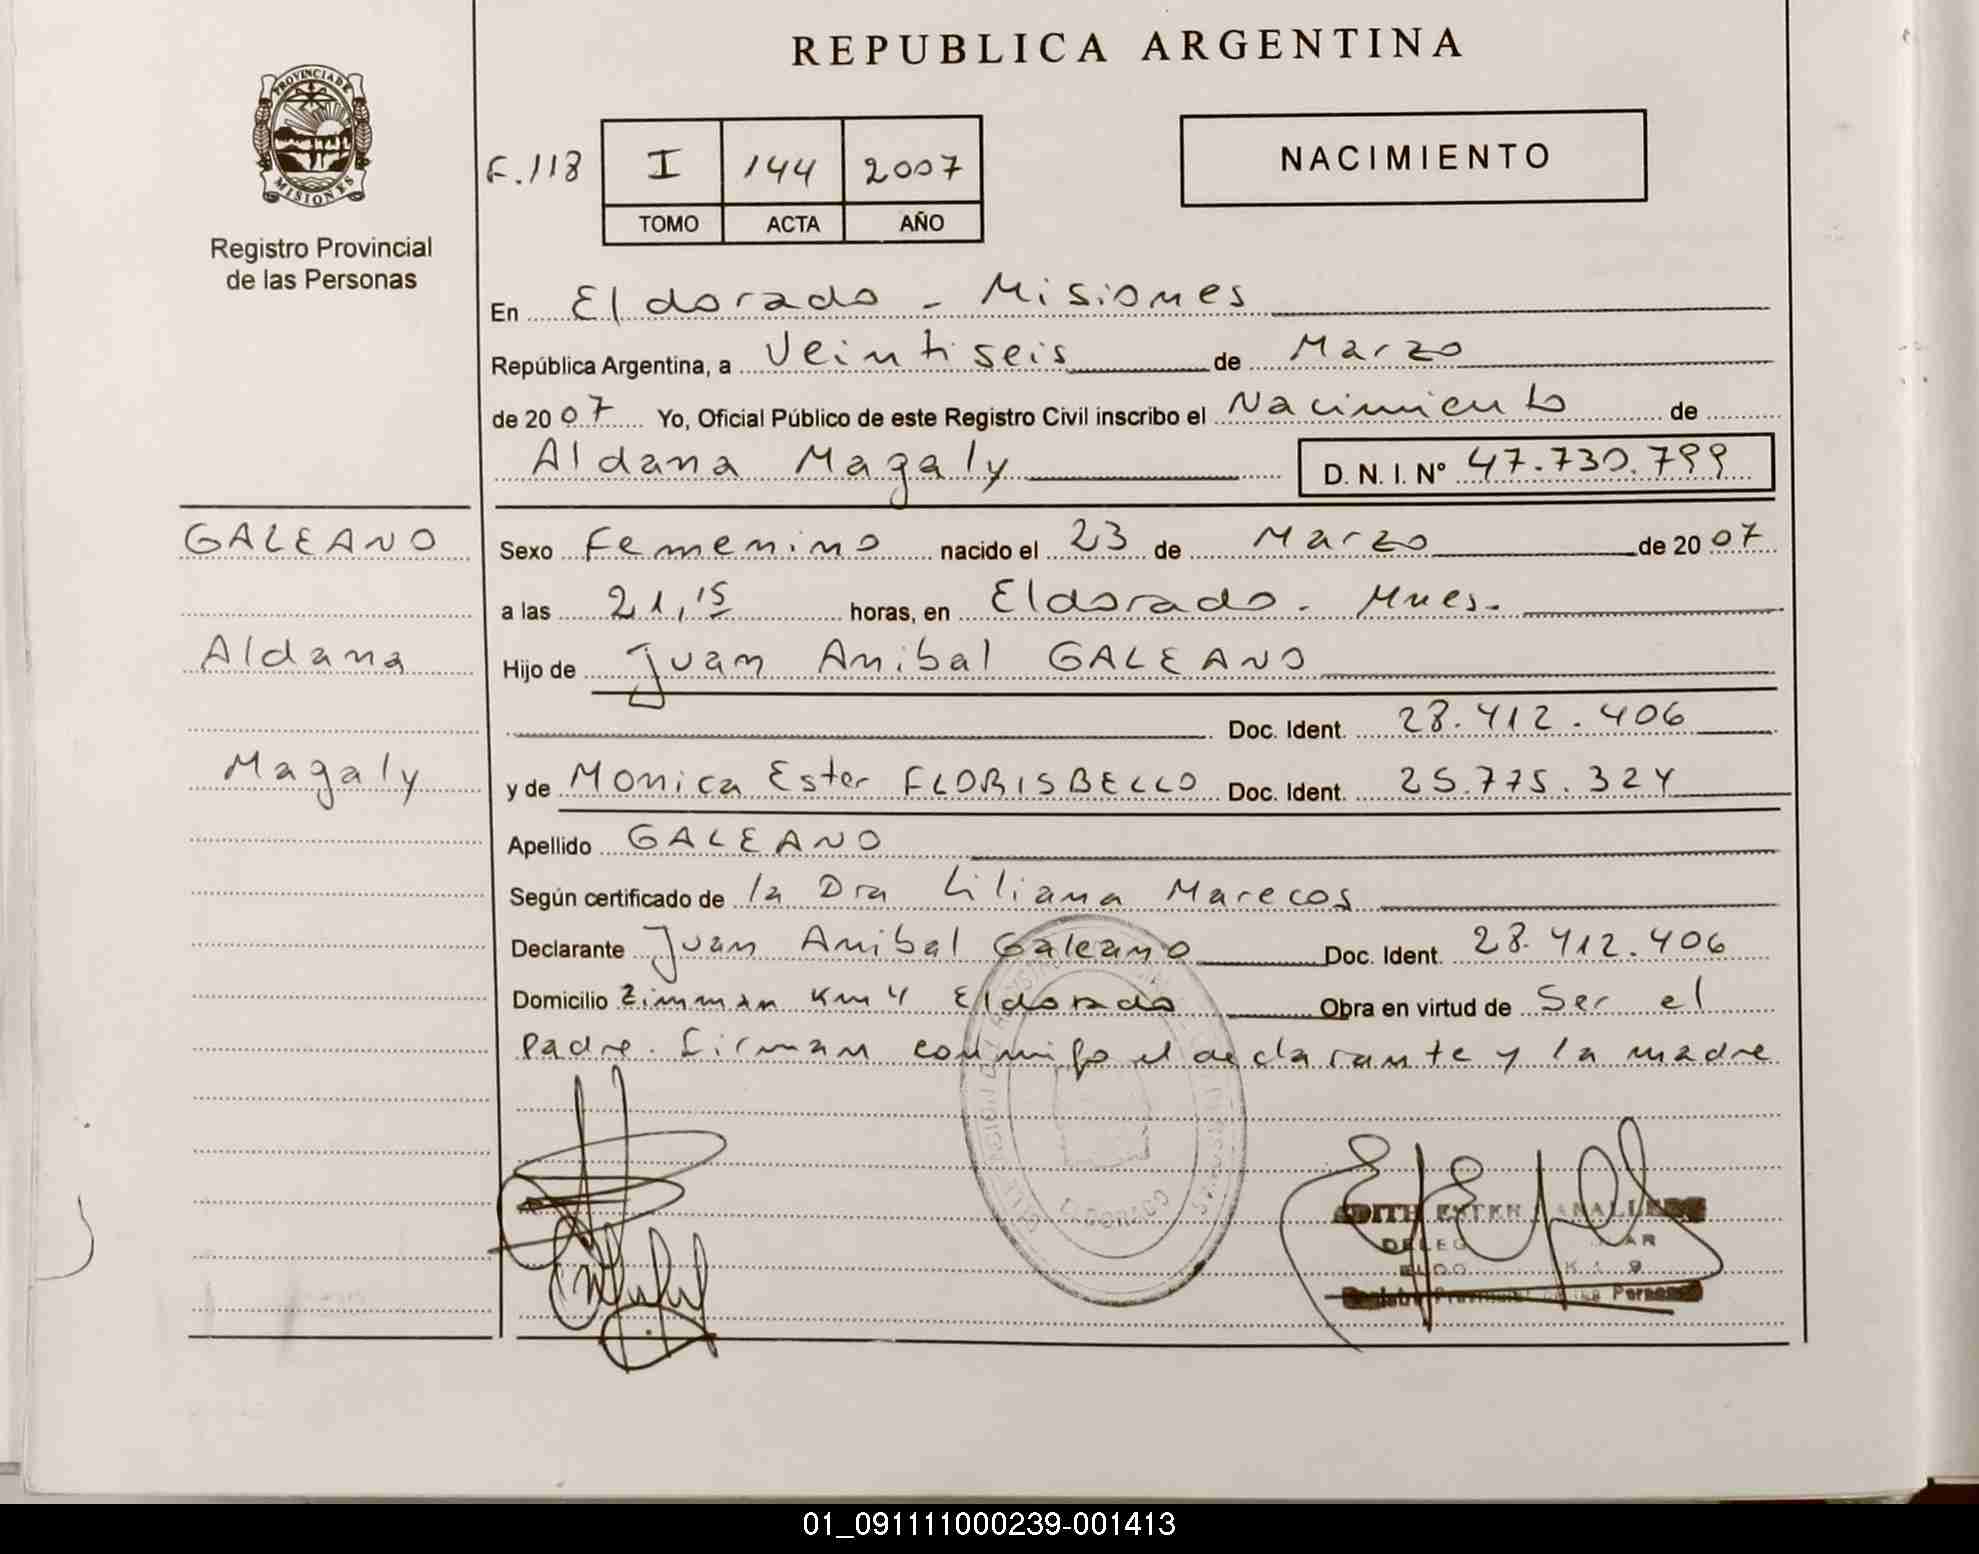 REPUBLICA ARGENTINA
PROVINCIA DE
MISIONES
Registro Provincial
de las Personas
F.118
I 144 2007
TOMO ACTA AÑO
NACIMIENTO
En Eldorado - Misiones
República Argentina, a Veintiseis de Marzo
de 2007 Yo, Oficial Público de este Registro Civil inscribo el Nacimiento de
Aldana Magaly D. N. I. Nº 47.730.799
GALEANO
Aldana
Magaly
Sexo Femenino nacido el 23 de Marzo de 2007
a las 21,15 horas, en Eldorado - Mnes.
Hijo de Juan Anibal GALEANO
Doc. Ident. 28.412.406
y de Monica Ester FLORISBELLO Doc. Ident. 25.775.324
Apellido GALEANO
Según certificado de la Dra Liliana Marecos
Declarante Juan Anibal Galeano Doc. Ident. 28.412.406
Domicilio Zimman Km 4 Eldorado Obra en virtud de Ser el
Padre. Firman conmigo el declarante y la madre
ELDORADO
EDITH ESTER
Registro Provincial de las Personas
01_091111000239-001413